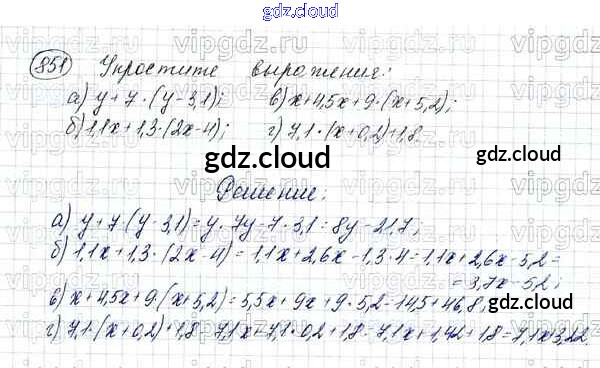 gdz.cloud
851 Упростите выражения:
а) y+7·(y-3,1); в) x+4,5x+9·(x+5,2);
б) 1,1x+1,3·(2x-4); г) 7,1·(x+0,2)+1,8.
gdz.cloud
gdz.cloud
Решение:
а) y+7·(y-3,1)=y·7y-7·3,1=8y-21,7;
б) 1,1x+1,3·(2x-4)=1,1x+2,6x-1,3·4=1,1x+2,6x-5,2=
=3,7x-5,2;
в) x+4,5x+9·(x+5,2)=5,5x+9x+9·5,2=14,5+46,8;
г) 7,1·(x+0,2)+1,8=7,1x+7,1·0,2+1,8=7,1x+1,42+1,8=7,1x+3,22.
gdz.cloud
gdz.cloud
gdz.cloud